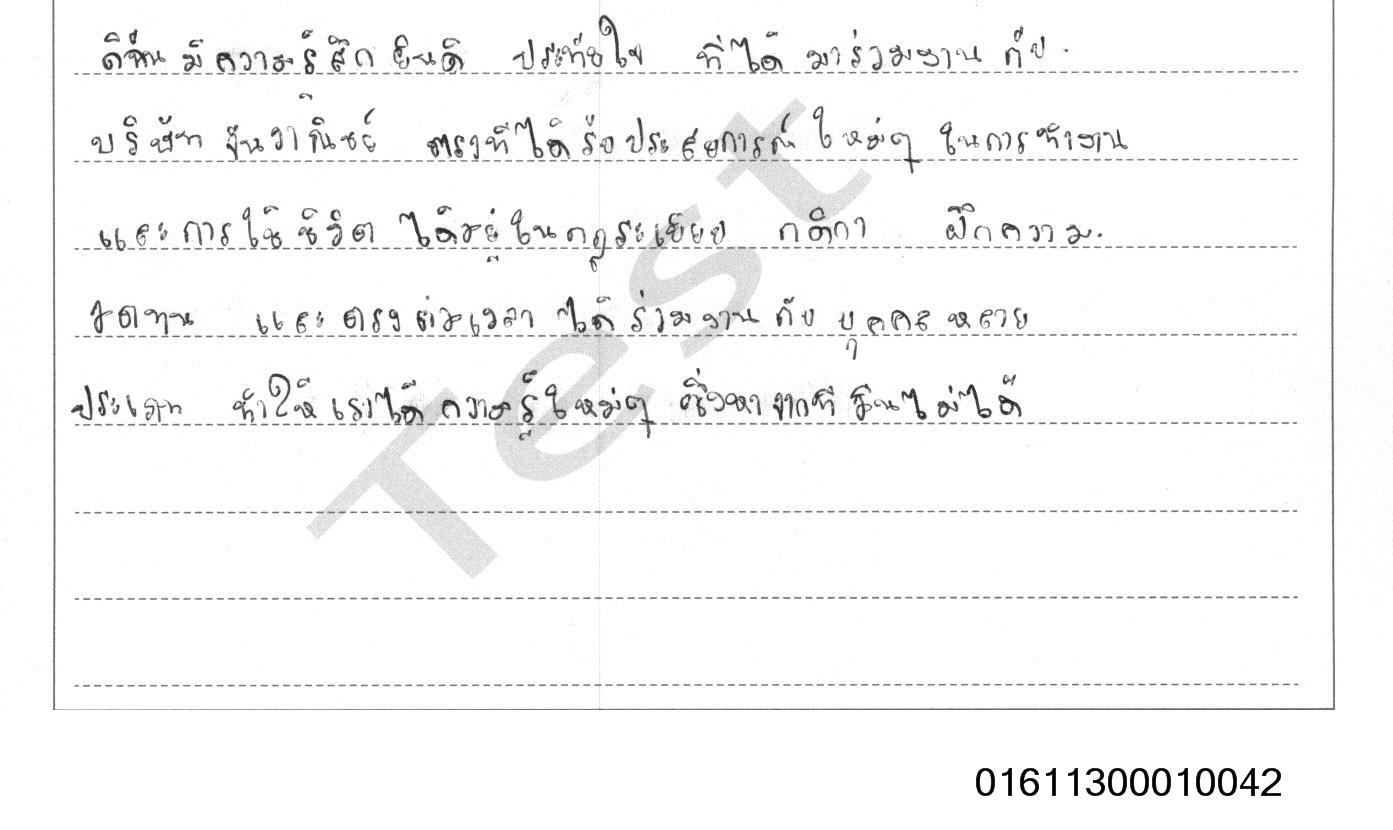 ดิฉันมีความรู้สึกยินดี ประทับใจ ที่ได้มาร่วมงานกับ
บริษัท ตรงที่ได้รับประสบการณ์ใหม่ๆ ในการทำงาน
และการใช้ชีวิต ได้อยู่ในกฎระเบียบ กติกา ฝึกความ
อดทน และตรงต่อเวลา ได้ร่วมงานกับบุคคลหลาย
ประเภท ทำให้เราได้ความรู้ใหม่ๆ ซึ่งหาจากที่อื่นไม่ได้
Test
01611300010042